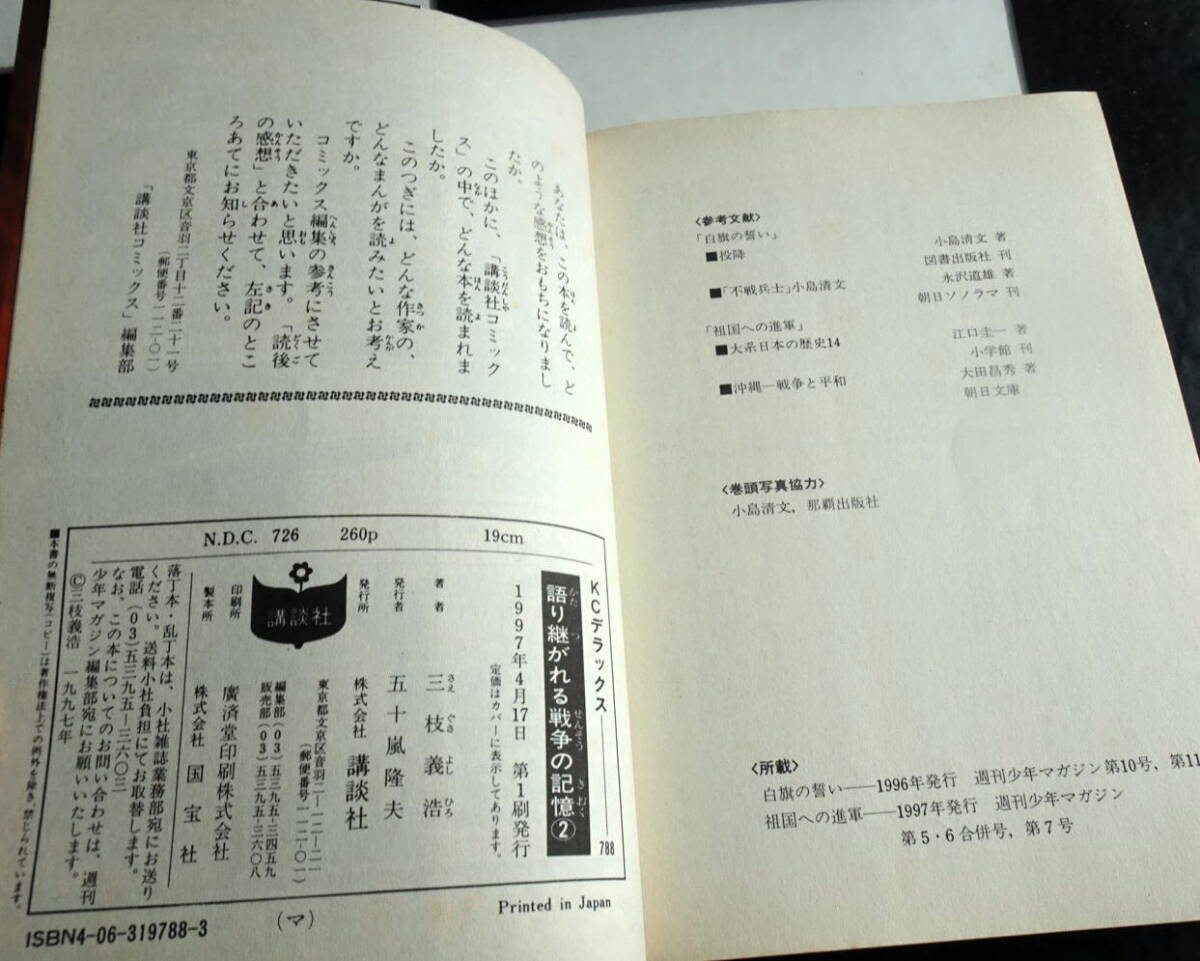 〈参考文献〉
「白旗の誓い」
■投降 小島清文 著
図書出版社 刊
■「不戦兵士」小島清文 永沢道雄 著
朝日ソノラマ 刊
「祖国への進軍」
■大系日本の歴史14 江口圭一 著
小学館 刊
■沖縄―戦争と平和 大田昌秀 著
朝日文庫
〈巻頭写真協力〉
小島清文，那覇出版社
〈所載〉
白旗の誓い――1996年発行 週刊少年マガジン第10号，第11
祖国への進軍――1997年発行 週刊少年マガジン
第5・6合併号，第7号
あなたは、この本を読んで、ど
のような感想をおもちになりまし
たか。
このほかに、「講談社コミック
ス」の中で、どんな本を読まれま
したか。
このつぎには、どんな作家の、
どんなまんがを読みたいとお考え
ですか。
コミックス編集の参考にさせて
いただきたいと思います。「読後
の感想」と合わせて、左記のとこ
ろあてにお知らせください。
東京都文京区音羽二丁目十二番二十一号
（郵便番号一一二-〇一）
「講談社コミックス」編集部
N.D.C. 726 260p 19cm
KCデラックス―― 788
語り継がれる戦争の記憶②
1997年4月17日 第1刷発行
定価はカバーに表示してあります。
著者 三枝義浩
発行者 五十嵐隆夫
発行所 株式会社 講談社
東京都文京区音羽二-一二-二一
（郵便番号一一二-〇一）
編集部（03）五三九五-三四五九
販売部（03）五三九五-三六〇八
講談社
印刷所 廣済堂印刷株式会社
製本所 株式会社 国宝社
落丁本・乱丁本は、小社雑誌業務部宛にお送り
ください。送料小社負担にてお取替します。
電話（03）五三九五-三六〇三
なお、この本についてのお問い合わせは、週刊
少年マガジン編集部宛にお願いいたします。
©三枝義浩 一九九七年
■本書の無断複写（コピー）は著作権法上での例外を除き、禁じられています。
ISBN4-06-319788-3
（マ）
Printed in Japan